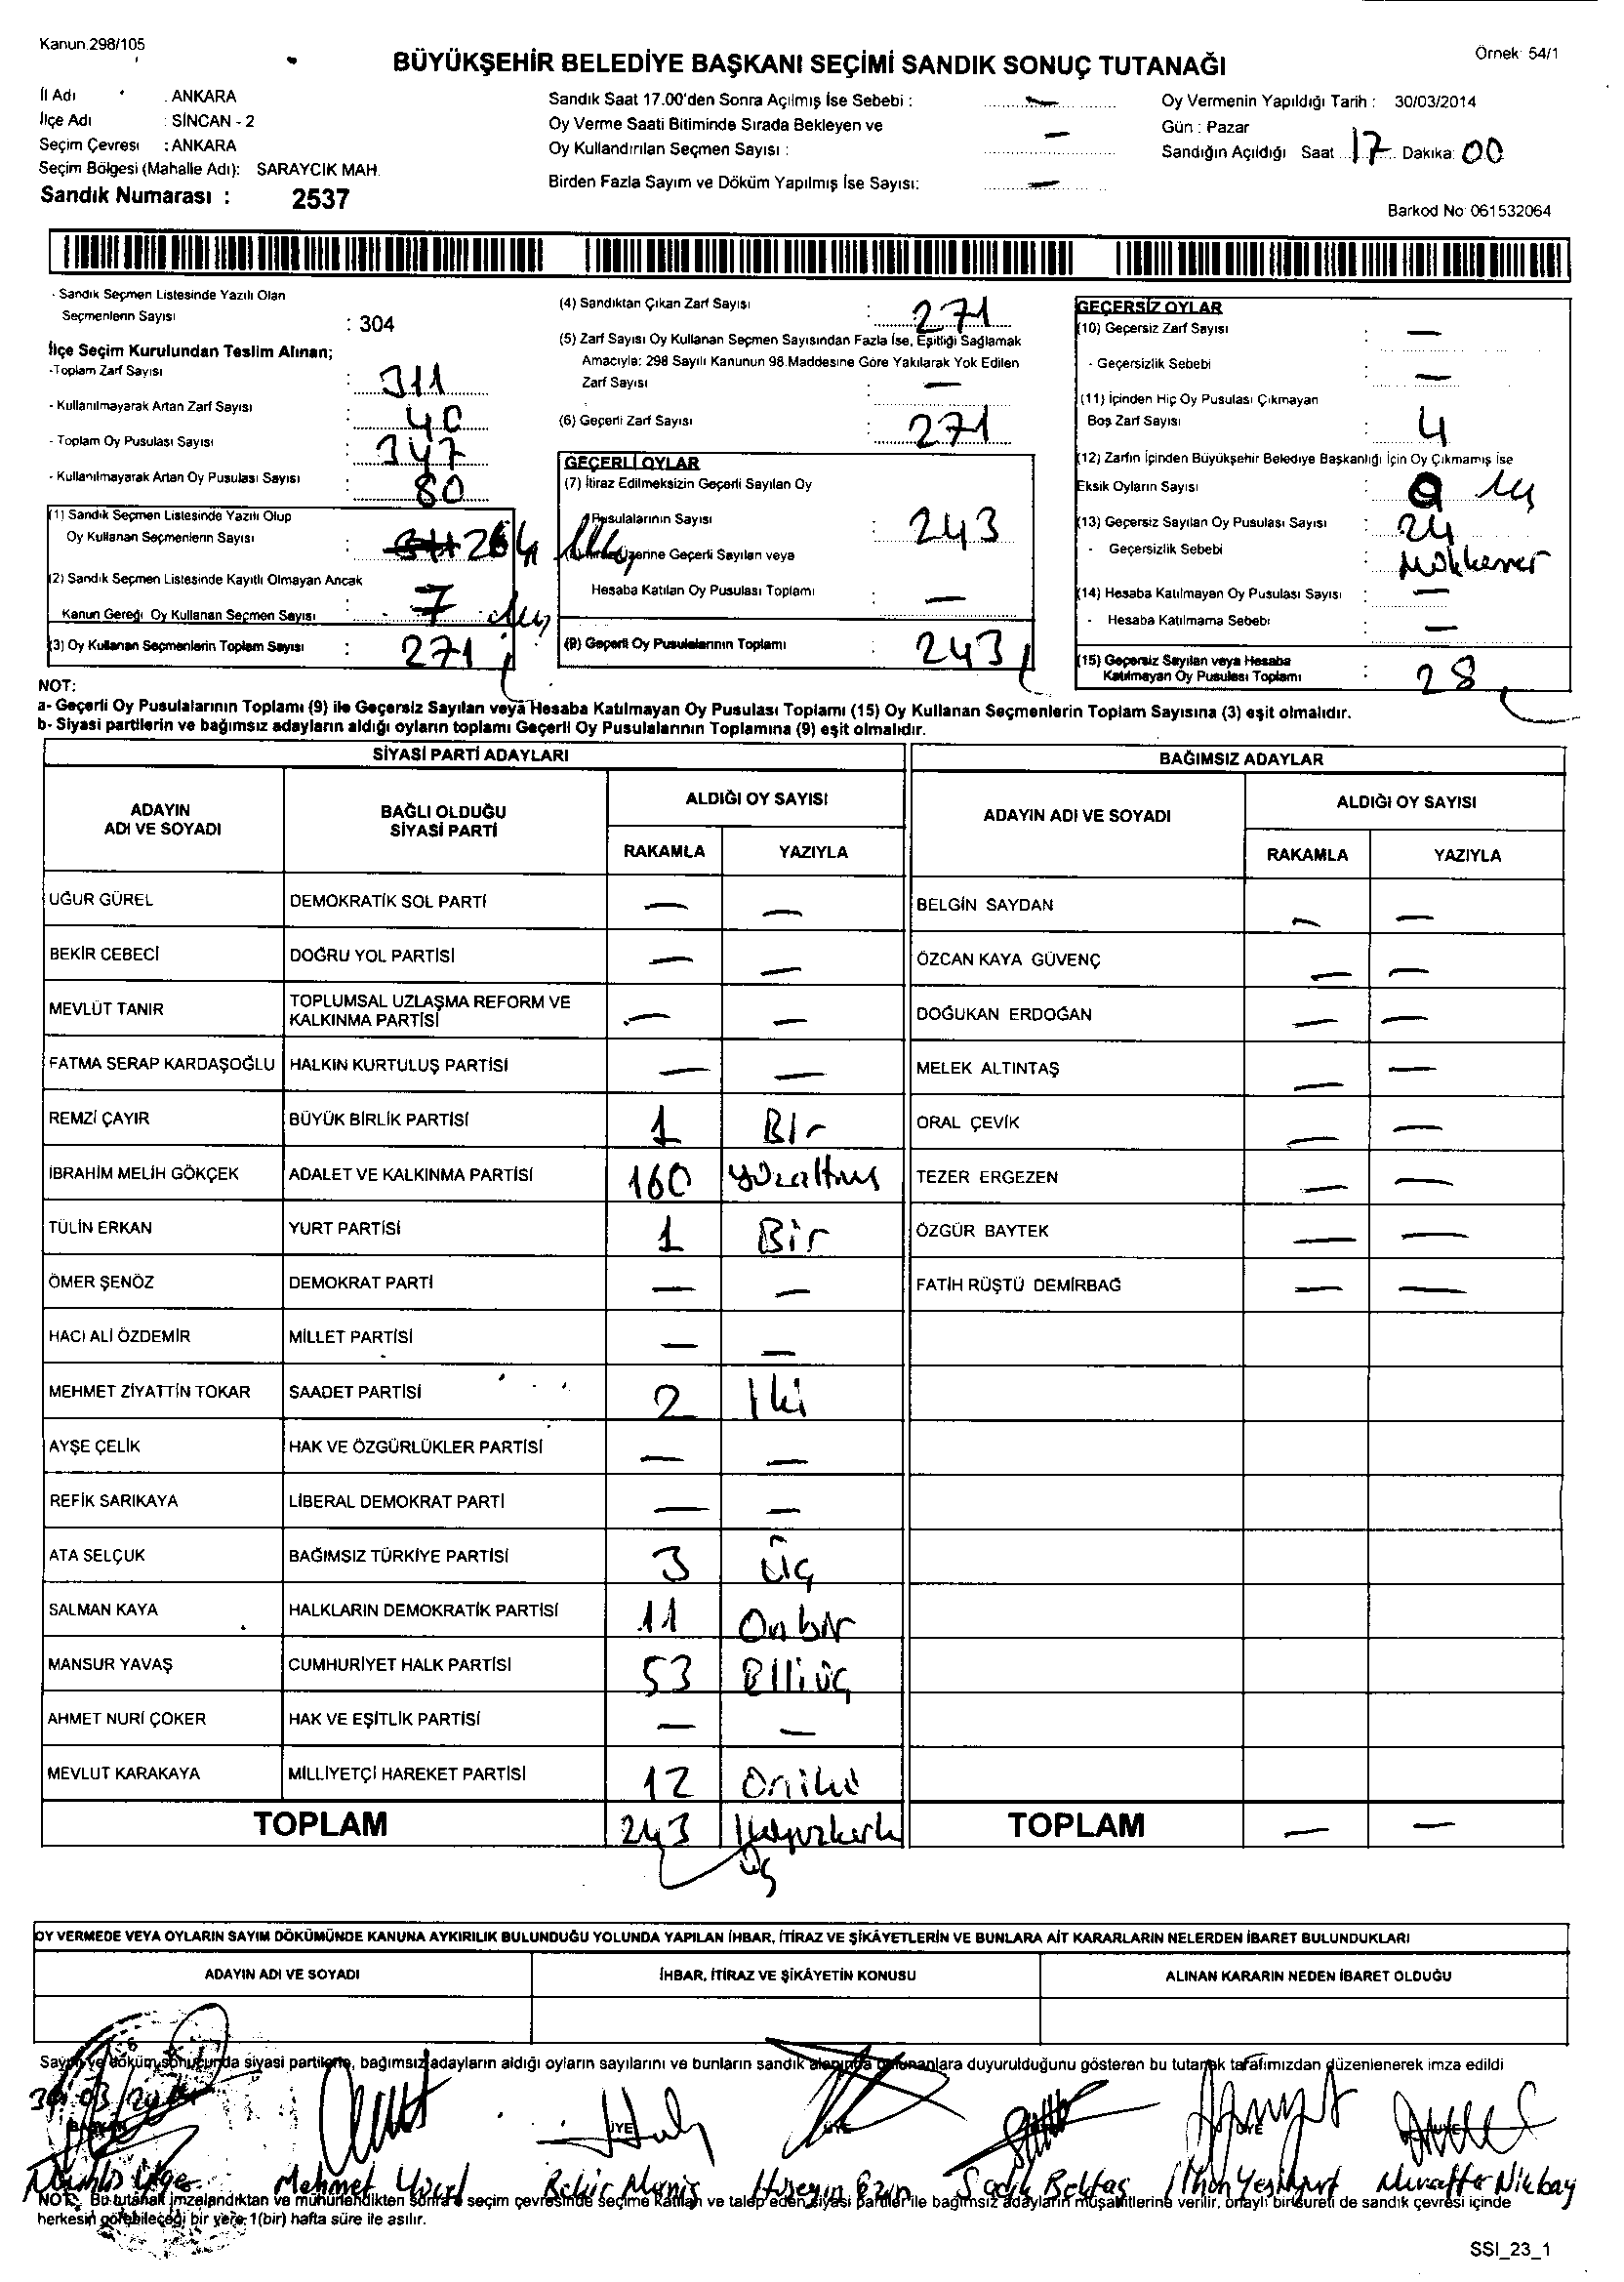 Kanun 298/105
Örnek 54/1
BÜYÜKŞEHİR BELEDİYE BAŞKANI SEÇİMİ SANDIK SONUÇ TUTANAĞI
İl Adı : ANKARA
İlçe Adı : SİNCAN - 2
Seçim Çevresi : ANKARA
Seçim Bölgesi (Mahalle Adı): SARAYCIK MAH.
Sandık Numarası : 2537
Sandık Saat 17.00'den Sonra Açılmış İse Sebebi : —
Oy Verme Saati Bitiminde Sırada Bekleyen ve
Oy Kullandırılan Seçmen Sayısı : —
Birden Fazla Sayım ve Döküm Yapılmış İse Sayısı: —
Oy Vermenin Yapıldığı Tarih : 30/03/2014
Gün : Pazar
Sandığın Açıldığı Saat 17 Dakika: 00
Barkod No: 061532064
- Sandık Seçmen Listesinde Yazılı Olan
Seçmenlerin Sayısı : 304
İlçe Seçim Kurulundan Teslim Alınan;
-Toplam Zarf Sayısı : 311
- Kullanılmayarak Artan Zarf Sayısı : 40
- Toplam Oy Pusulası Sayısı : 347
- Kullanılmayarak Artan Oy Pusulası Sayısı : 80
(1) Sandık Seçmen Listesinde Yazılı Olup
Oy Kullanan Seçmenlerin Sayısı : 264
(2) Sandık Seçmen Listesinde Kayıtlı Olmayan Ancak
Kanun Gereği Oy Kullanan Seçmen Sayısı : 7
(3) Oy Kullanan Seçmenlerin Toplam Sayısı : 271
(4) Sandıktan Çıkan Zarf Sayısı : 271
(5) Zarf Sayısı Oy Kullanan Seçmen Sayısından Fazla İse, Eşitliği Sağlamak
Amacıyla: 298 Sayılı Kanunun 98.Maddesine Göre Yakılarak Yok Edilen
Zarf Sayısı : —
(6) Geçerli Zarf Sayısı : 271
GEÇERLİ OYLAR
(7) İtiraz Edilmeksizin Geçerli Sayılan Oy
Pusulalarının Sayısı : 243
Üzerine Geçerli Sayılan veya
Hesaba Katılan Oy Pusulası Toplamı : —
(9) Geçerli Oy Pusulalarının Toplamı : 243
GEÇERSİZ OYLAR
(10) Geçersiz Zarf Sayısı : —
- Geçersizlik Sebebi : —
(11) İçinden Hiç Oy Pusulası Çıkmayan
Boş Zarf Sayısı : 4
(12) Zarfın İçinden Büyükşehir Belediye Başkanlığı İçin Oy Çıkmamış İse
Eksik Oyların Sayısı :
(13) Geçersiz Sayılan Oy Pusulası Sayısı : 24
- Geçersizlik Sebebi : Mükkerrer
(14) Hesaba Katılmayan Oy Pusulası Sayısı : —
- Hesaba Katılmama Sebebi : —
(15) Geçersiz Sayılan veya Hesaba
Katılmayan Oy Pusulası Toplamı : 28
NOT:
a- Geçerli Oy Pusulalarının Toplamı (9) ile Geçersiz Sayılan veya Hesaba Katılmayan Oy Pusulası Toplamı (15) Oy Kullanan Seçmenlerin Toplam Sayısına (3) eşit olmalıdır.
b- Siyasi partilerin ve bağımsız adayların aldığı oyların toplamı Geçerli Oy Pusulalarının Toplamına (9) eşit olmalıdır.
SİYASİ PARTİ ADAYLARI
BAĞIMSIZ ADAYLAR
ADAYIN ADI VE SOYADI
BAĞLI OLDUĞU SİYASİ PARTİ
ALDIĞI OY SAYISI
RAKAMLA YAZIYLA
ADAYIN ADI VE SOYADI
ALDIĞI OY SAYISI
RAKAMLA YAZIYLA
UĞUR GÜREL DEMOKRATİK SOL PARTİ — — BELGİN SAYDAN — —
BEKİR CEBECİ DOĞRU YOL PARTİSİ — — ÖZCAN KAYA GÜVENÇ — —
MEVLÜT TANIR TOPLUMSAL UZLAŞMA REFORM VE KALKINMA PARTİSİ — — DOĞUKAN ERDOĞAN — —
FATMA SERAP KARDAŞOĞLU HALKIN KURTULUŞ PARTİSİ — — MELEK ALTINTAŞ — —
REMZİ ÇAYIR BÜYÜK BİRLİK PARTİSİ 1 BIr ORAL ÇEVİK — —
İBRAHİM MELİH GÖKÇEK ADALET VE KALKINMA PARTİSİ 160 yüzaltmış TEZER ERGEZEN — —
TÜLİN ERKAN YURT PARTİSİ 1 Bir ÖZGÜR BAYTEK — —
ÖMER ŞENÖZ DEMOKRAT PARTİ — — FATİH RÜŞTÜ DEMİRBAĞ — —
HACI ALİ ÖZDEMİR MİLLET PARTİSİ — —
MEHMET ZİYATTİN TOKAR SAADET PARTİSİ 2 Iki
AYŞE ÇELİK HAK VE ÖZGÜRLÜKLER PARTİSİ — —
REFİK SARIKAYA LİBERAL DEMOKRAT PARTİ — —
ATA SELÇUK BAĞIMSIZ TÜRKİYE PARTİSİ 3 Üç
SALMAN KAYA HALKLARIN DEMOKRATİK PARTİSİ 11 Onbir
MANSUR YAVAŞ CUMHURİYET HALK PARTİSİ 53 Elliüç
AHMET NURİ ÇOKER HAK VE EŞİTLİK PARTİSİ — —
MEVLUT KARAKAYA MİLLİYETÇİ HAREKET PARTİSİ 12 Oniki
TOPLAM 243 Ikiyüzkırk TOPLAM — —
üç
OY VERMEDE VEYA OYLARIN SAYIM DÖKÜMÜNDE KANUNA AYKIRILIK BULUNDUĞU YOLUNDA YAPILAN İHBAR, İTİRAZ VE ŞİKÂYETLERİN VE BUNLARA AİT KARARLARIN NELERDEN İBARET BULUNDUKLARI
ADAYIN ADI VE SOYADI İHBAR, İTİRAZ VE ŞİKÂYETİN KONUSU ALINAN KARARIN NEDEN İBARET OLDUĞU
Sayım ve döküm sonucunda siyasi partilerin, bağımsız adayların aldığı oyların sayılarını ve bunların sandık alanında bulunanlara duyurulduğunu gösteren bu tutanak tarafımızdan düzenlenerek imza edildi
BAŞKAN ÜYE ÜYE ÜYE
Mehmet Yücel Bekir Hüseyin Sadık Bektaş İlhan Yeşilyurt
NOT: Bu tutanak imzalandıktan ve mühürlendikten sonra seçim çevresinde seçime katılan ve talep eden siyasi partiler ile bağımsız adayların müşahitlerine verilir, onaylı bir sureti de sandık çevresi içinde
herkesin görebileceği bir yere 1(bir) hafta süre ile asılır.
SSI_23_1